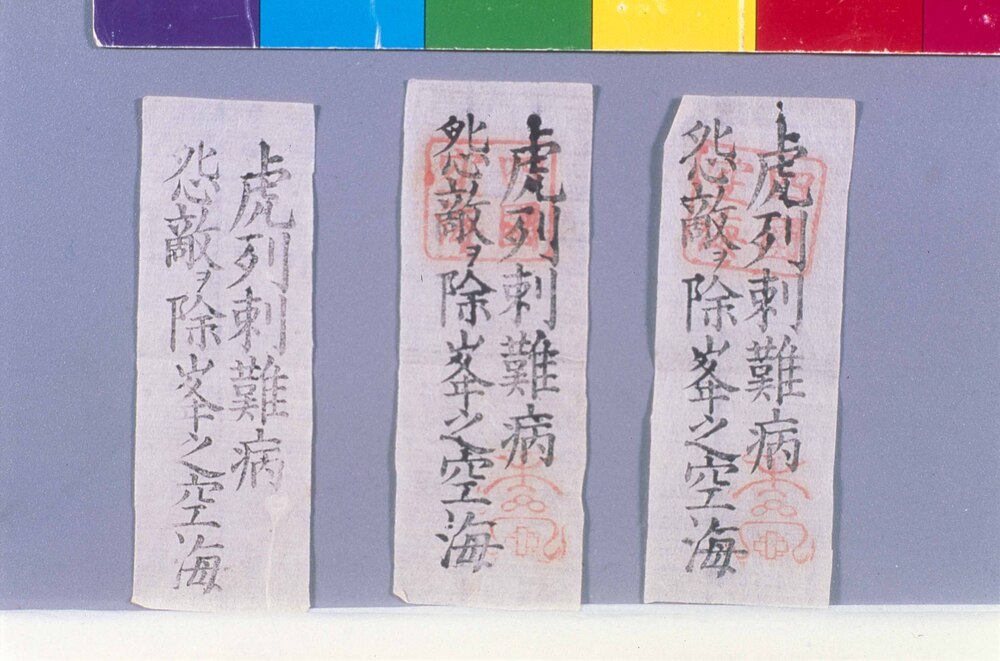 虎列刺難病
怨敵ヲ除峯之空海
虎列刺難病
怨敵ヲ除峯之空海
虎列刺難病
怨敵ヲ除峯之空海